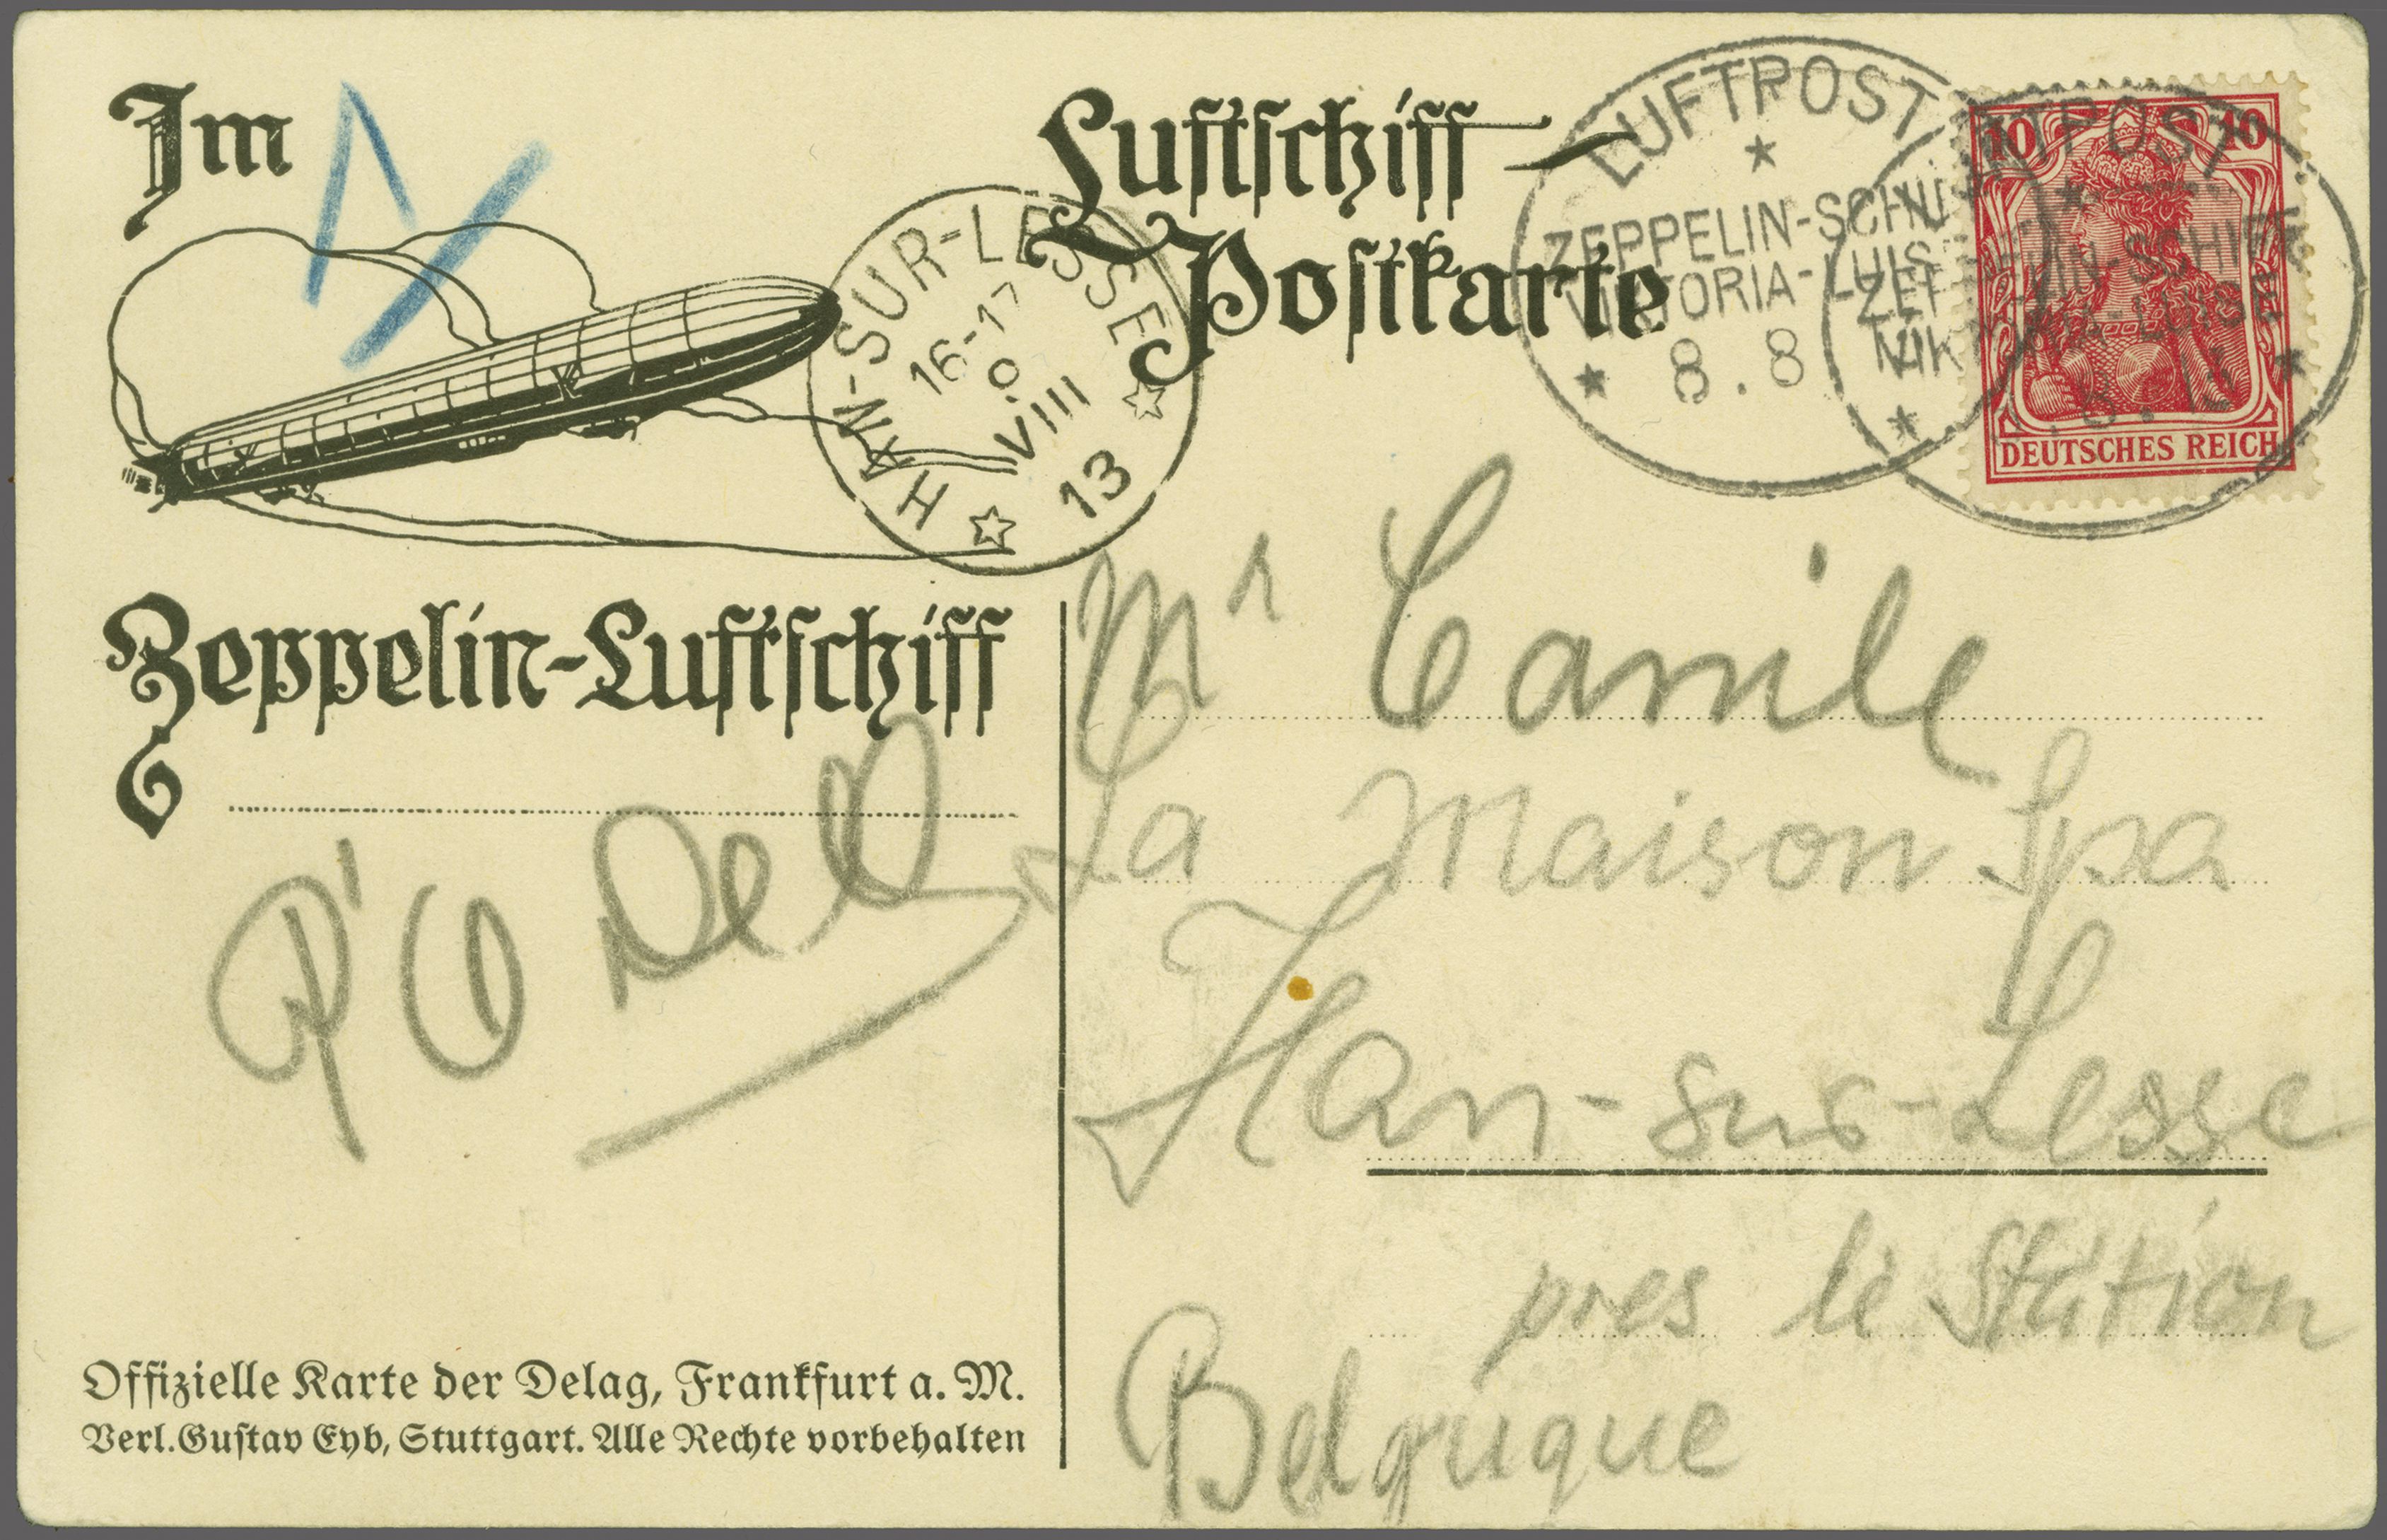 Im
Luftschiff-
Postkarte
LUFTPOST
ZEPPELIN-SCHI
VIKTORIA-LUIS
8.8
10 10
TPOST
ZEP LIN-SCHIFF
VIK LUISE
DEUTSCHES REICH
HAN-SUR-LESSE
16-17
VIII
13
Zeppelin-Luftschiff
Mr Camile
La Maison Spa
Han-sur-Lesse
pres le Station
Belguque
Offizielle Karte der Delag, Frankfurt a. M.
Verl. Gustav Eyb, Stuttgart. Alle Rechte vorbehalten